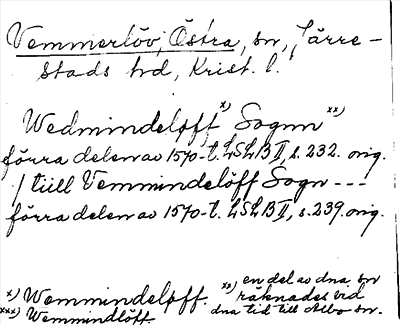 Vemmerlöv, Östra, sn, Järre-
stads hd, Krist. l.
Wedmindeløff x) Sognn xx)
förra delen av 1570-t. LSLB II, s. 232. orig.
/ tiill Vemmindelöff Sogn ---
förra delen av 1570-t. LSLB II, s. 239. orig.
x) Wemmindeløff. xx) en del av dna sn
räknades vid
xxx) Wemmindlöff. dna tid till Albo hd.